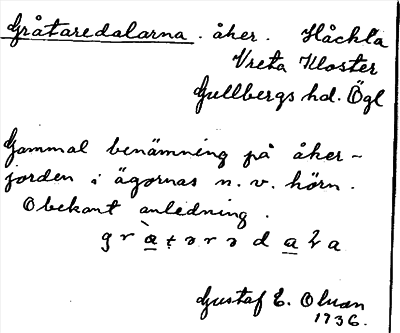 Gråtaredalarna. åker. Håckla
Vreta Kloster
Gullbergs hd. Ögl
Gammal benämning på åker-
jorden i ägornas n. v. hörn.
Obekant anledning.
Gustaf E. Olsson
1936.